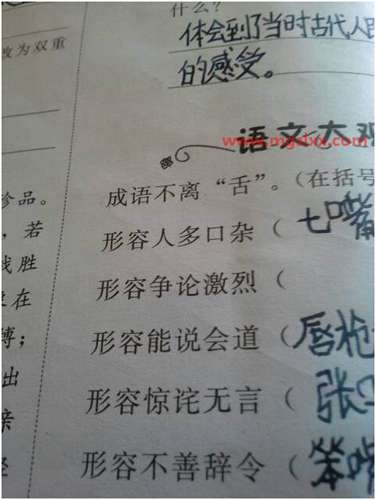 什么？
体会到了当时古代人民
的感受。
www.mgslxx.com
语文大观
成语不离“舌”。（在括号
形容人多口杂（七嘴
形容争论激烈（
形容能说会道（唇枪
形容惊诧无言（张口
形容不善辞令（笨嘴
改为双重
珍品。
，若
战胜
在
博；
出
亲